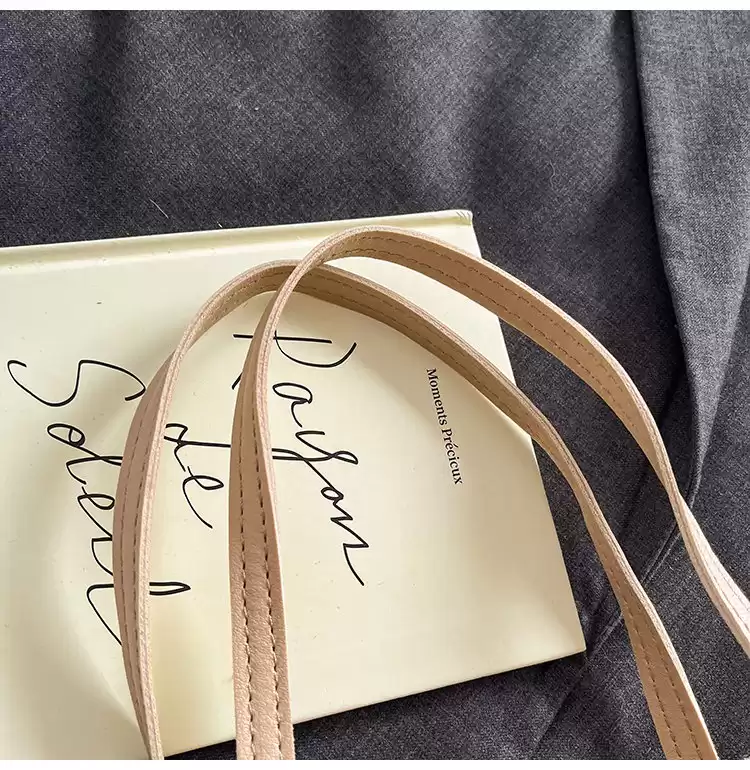 Moments Précieux
Rayon
de
Soleil